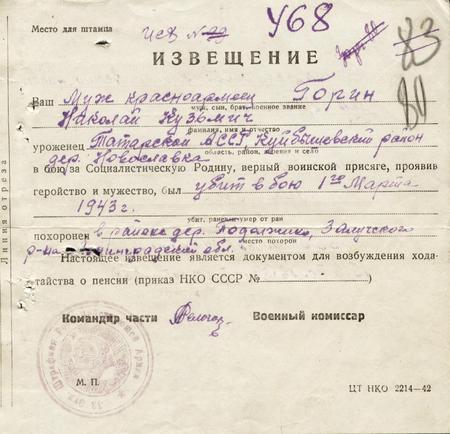 Место для штампа
У68
83
80
ИЗВЕЩЕНИЕ
Ваш Муж красноармеец Горин
муж, сын, брат, военное звание
Николай Кузьмич
фамилия, имя и отчество
уроженец Татарской АССР Куйбышевский район
область, район, деревня и село
дер. Новославка
в бою за Социалистическую Родину, верный воинской присяге, проявив
геройство и мужество, был убит в бою 1го Марта
1943 г.
убит, ранен, умер от ран
похоронен в районе дер. Подолжино, Залучского
место похорон
р-на Ленинградской обл.
Настоящее извещение является документом для возбуждения хода-
тайства о пенсии (приказ НКО СССР №)
Командир части Военный комиссар
М. П.
ЦТ НКО 2214—42
Линия отреза